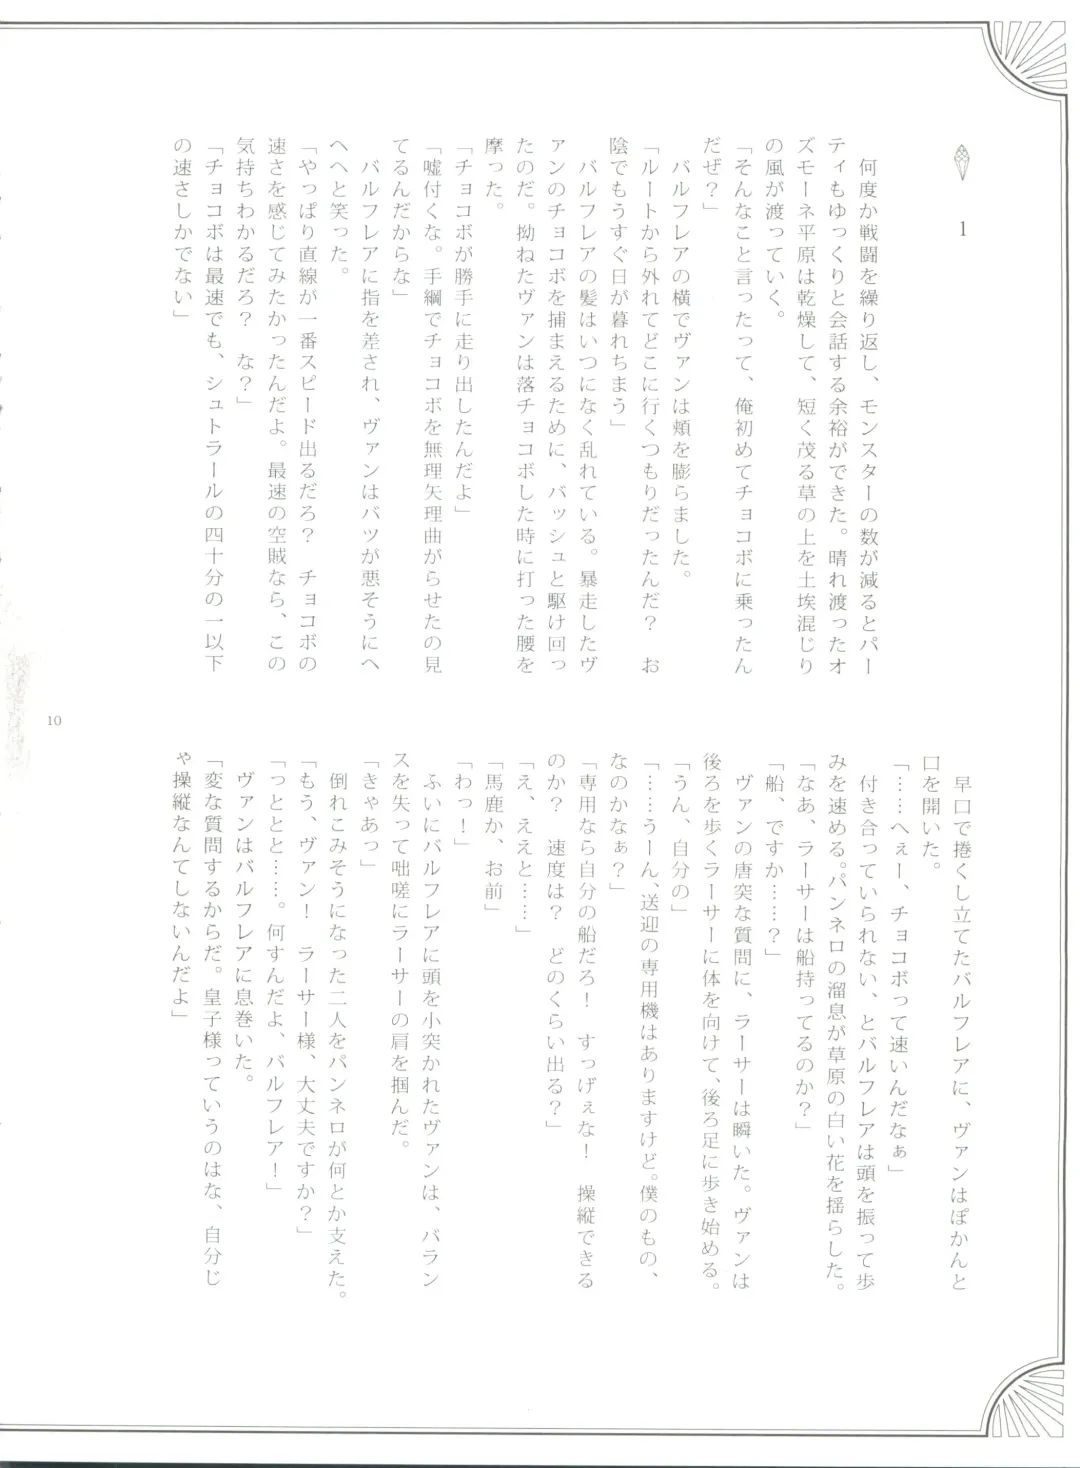 1
何度か戦闘を繰り返し、モンスターの数が減るとパー
ティもゆっくりと会話する余裕ができた。晴れ渡ったオ
ズモーネ平原は乾燥して、短く茂る草の上を土埃混じり
の風が渡っていく。
「そんなこと言ったって、俺初めてチョコボに乗ったん
だぜ？」
バルフレアの横でヴァンは頬を膨らました。
「ルートから外れてどこに行くつもりだったんだ？　お
陰でもうすぐ日が暮れちまう」
バルフレアの髪はいつになく乱れている。暴走したヴ
ァンのチョコボを捕まえるために、バッシュと駆け回っ
たのだ。拗ねたヴァンは落チョコボした時に打った腰を
摩った。
「チョコボが勝手に走り出したんだよ」
「嘘付くな。手綱でチョコボを無理矢理曲がらせたの見
てるんだからな」
バルフレアに指を差され、ヴァンはバツが悪そうにへ
へへと笑った。
「やっぱり直線が一番スピード出るだろ？　チョコボの
速さを感じてみたかったんだよ。最速の空賊なら、この
気持ちわかるだろ？　な？」
「チョコボは最速でも、シュトラールの四十分の一以下
の速さしかでない」
早口で捲くし立てたバルフレアに、ヴァンはぽかんと
口を開いた。
「……へぇー、チョコボって速いんだなぁ」
付き合っていられない、とバルフレアは頭を振って歩
みを速める。パンネロの溜息が草原の白い花を揺らした。
「なあ、ラーサーは船持ってるのか？」
「船、ですか……？」
ヴァンの唐突な質問に、ラーサーは瞬いた。ヴァンは
後ろを歩くラーサーに体を向けて、後ろ足に歩き始める。
「うん、自分の」
「……うーん、送迎の専用機はありますけど。僕のもの、
なのかなぁ？」
「専用なら自分の船だろ！　すっげぇな！　操縦できる
のか？　速度は？　どのくらい出る？」
「え、ええと……」
「馬鹿か、お前」
「わっ！」
ふいにバルフレアに頭を小突かれたヴァンは、バラン
スを失って咄嗟にラーサーの肩を掴んだ。
「きゃあっ」
倒れこみそうになった二人をパンネロが何とか支えた。
「もう、ヴァン！　ラーサー様、大丈夫ですか？」
「っととと……。何すんだよ、バルフレア！」
ヴァンはバルフレアに息巻いた。
「変な質問するからだ。皇子様っていうのはな、自分じ
ゃ操縦なんてしないんだよ」
10